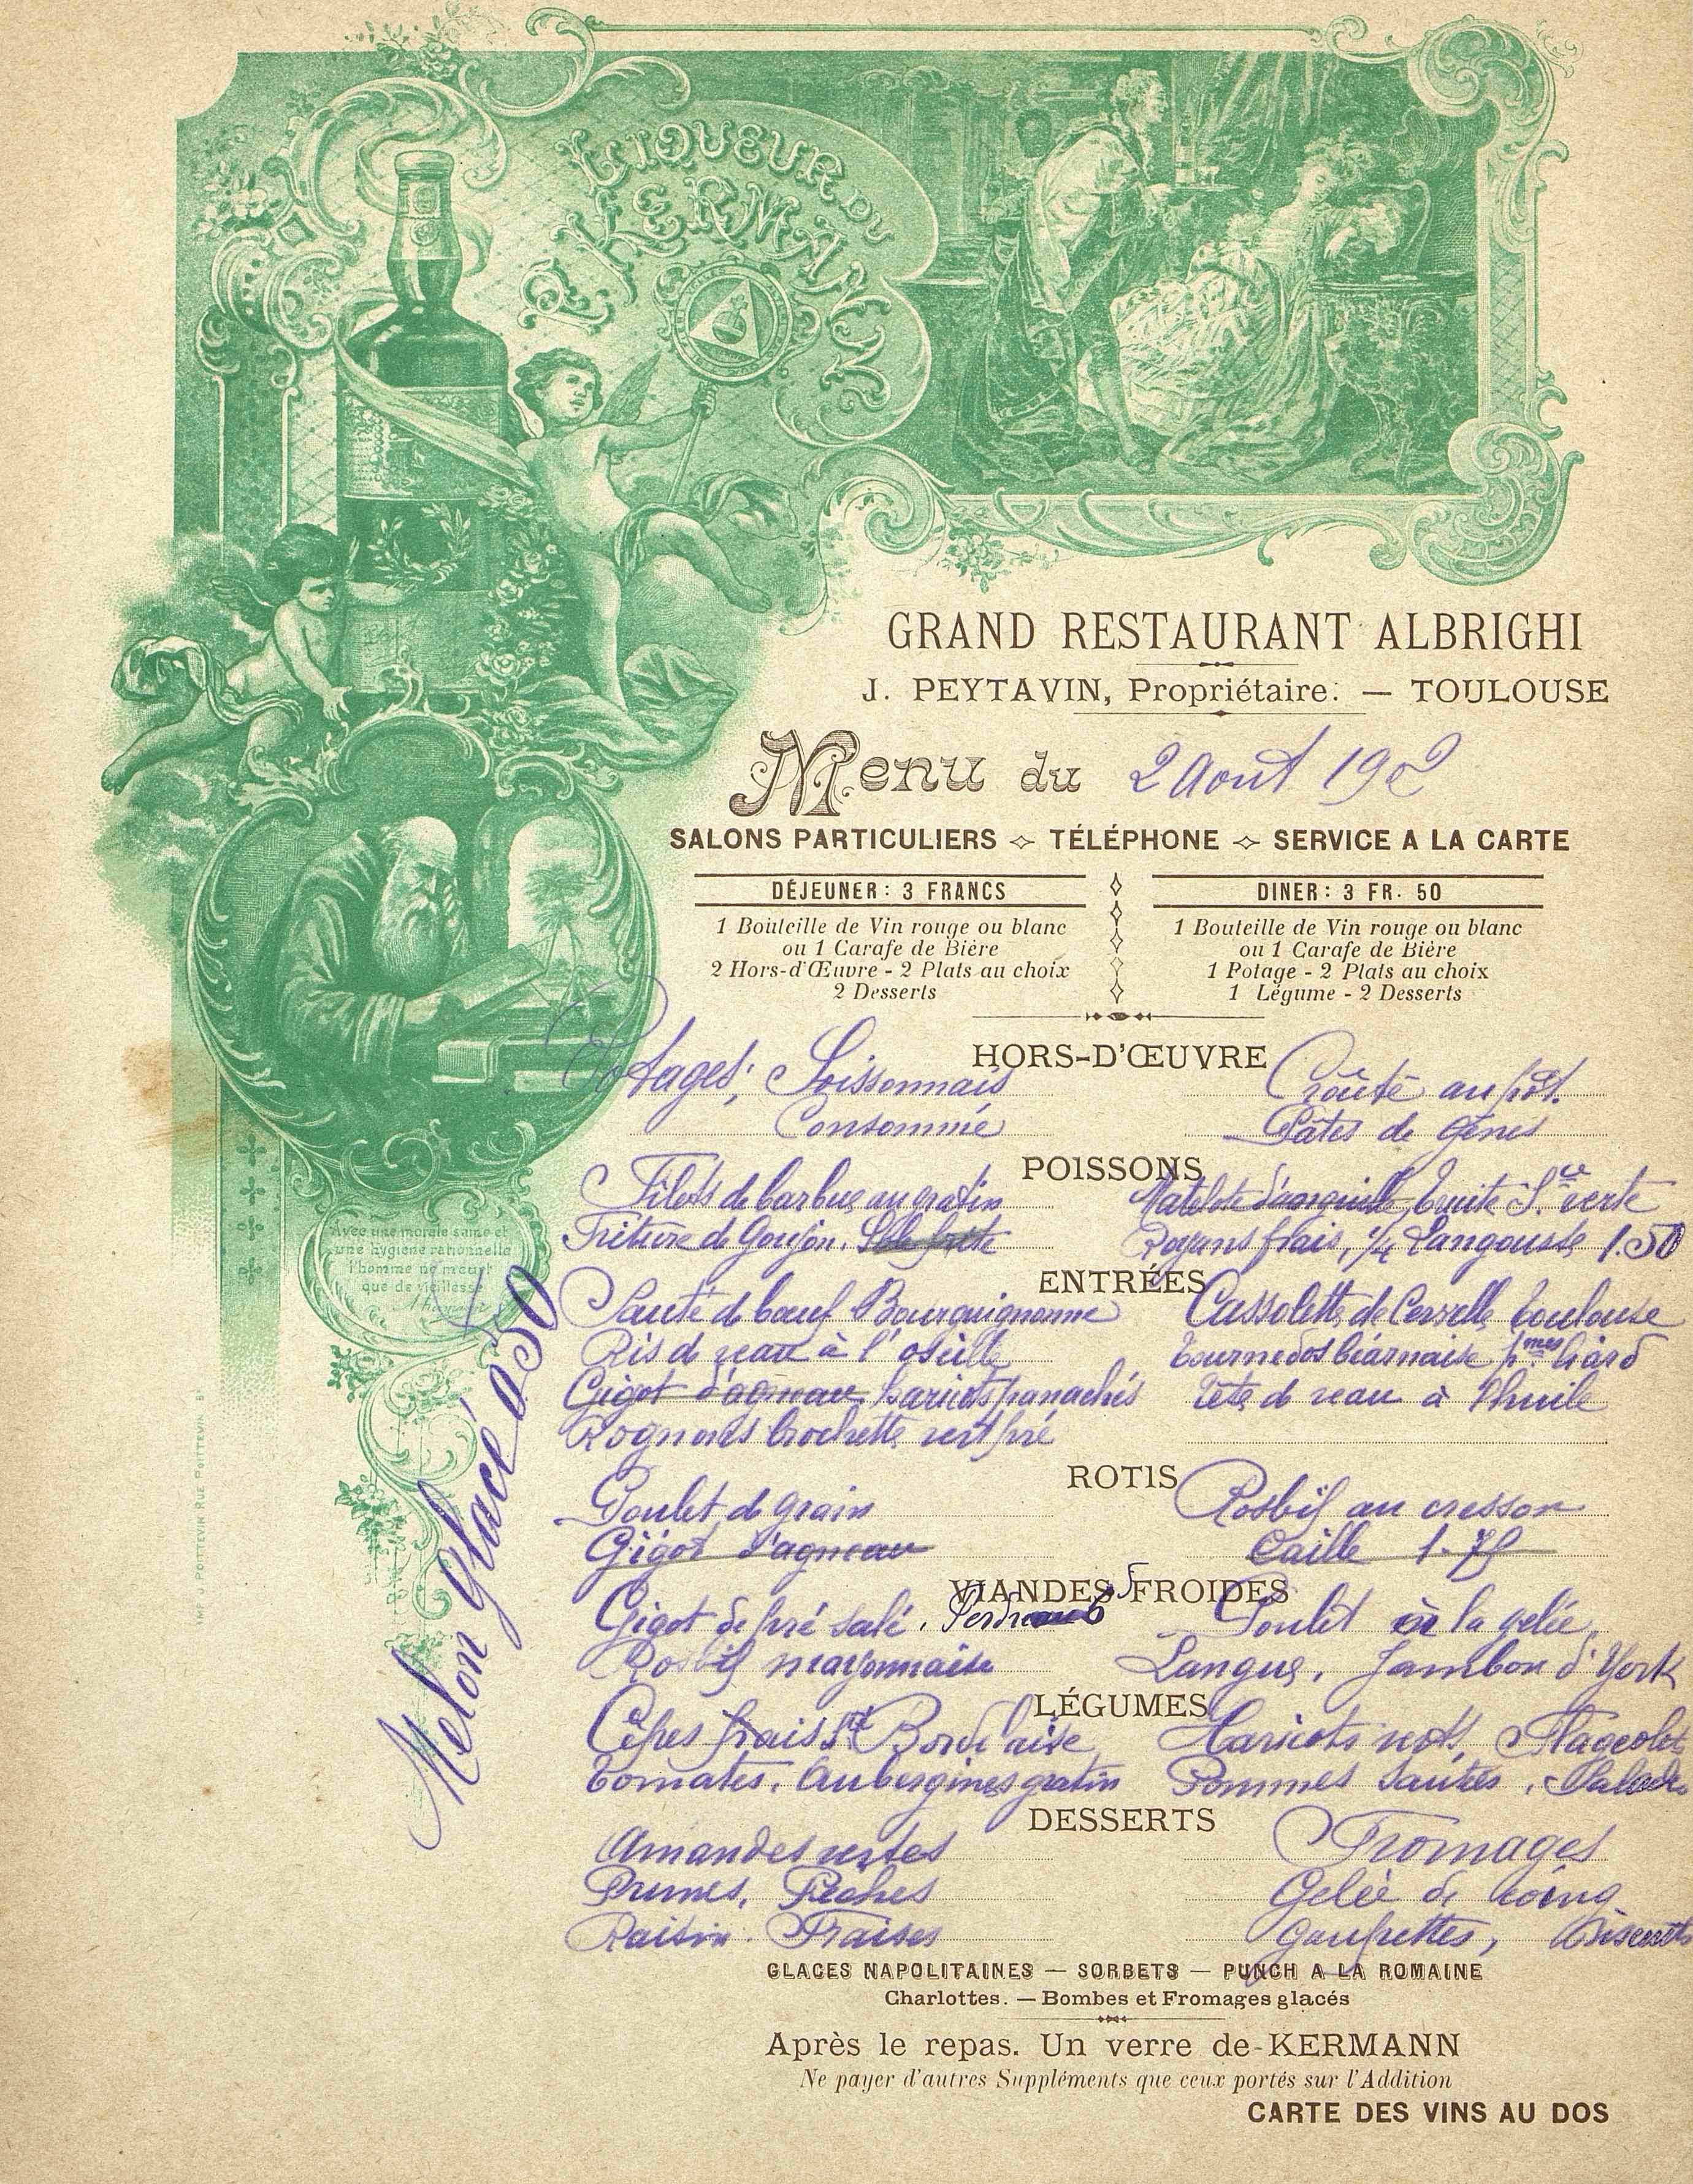 LIQUEUR DU
Dr KERMANN
GRAND RESTAURANT ALBRIGHI
J. PEYTAVIN, Propriétaire. — TOULOUSE
Menu du 2 Aout 1902
SALONS PARTICULIERS ⟡ TÉLÉPHONE ⟡ SERVICE A LA CARTE
DÉJEUNER: 3 FRANCS
1 Bouteille de Vin rouge ou blanc
ou 1 Carafe de Bière
2 Hors-d'Œuvre - 2 Plats au choix
2 Desserts
DINER: 3 FR. 50
1 Bouteille de Vin rouge ou blanc
ou 1 Carafe de Bière
1 Potage - 2 Plats au choix
1 Légume - 2 Desserts
HORS-D'ŒUVRE
Potages; Soissonnais
Croûte au pot.
Consommé
Pâtes de Gênes
POISSONS
Filets de barbue au gratin
Matelote d'anguille, Truite Sce verte
Friture de Goujon. Sole frite
Royans frais, 1/4 Langouste 1.50
ENTRÉES
Sauté de bœuf Bourguignonne
Cassolette de Cervelle Toulouse
Ris de veau à l'oseille
Tournedos béarnaise pmes
Gigot d'agneau haricots panachés
Tête de veau à l'huile
Rognons brochette vert pré
ROTIS
Poulet de grain
Rosbif au cresson
Gigot d'agneau
Caille 1.75
VIANDES FROIDES
Gigot de pré salé.
Poulet à la gelée
Rosbif mayonnaise
Langue, Jambon d'York
LÉGUMES
Cèpes frais Bordelaise
Haricots verts, Flageolets
Tomates, Aubergines gratin
Pommes Sautées, Salade
DESSERTS
Amandes vertes
Fromages
Prunes, Pêches
Gelée de coing
Raisin. Fraises
Gaufrettes, Biscuits
Melon glacé 0.50
Avec une morale saine et
une hygiène rationnelle
l'homme ne meurt
que de vieillesse
IMP. J. POITTEVIN RUE POITTEVIN. 8
GLACES NAPOLITAINES — SORBETS — PUNCH A LA ROMAINE
Charlottes. — Bombes et Fromages glacés
Après le repas. Un verre de KERMANN
Ne payer d'autres Suppléments que ceux portés sur l'Addition
CARTE DES VINS AU DOS